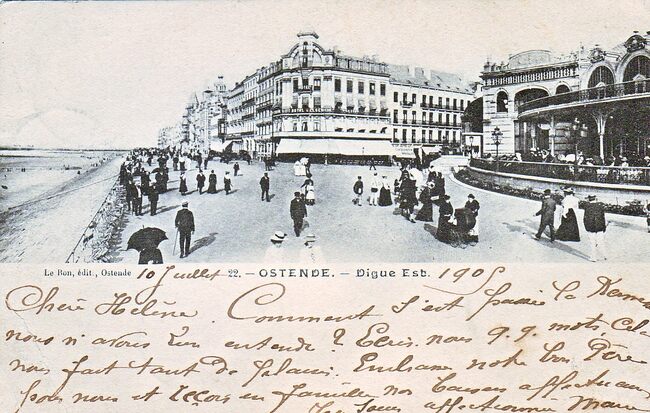 Le Bon, édit., Ostende 10 Juillet 22. — OSTENDE. — Digue Est. 1905
Chère Hélène. Comment s'est passée la
nous n'avons rien entendu? Ecris nous q.q. mots. Cela
nous fait tant de plaisir. Embrasse notre bon Père
pour nous et reçois en famille nos baisers affectueux
Ta soeur affectionnée